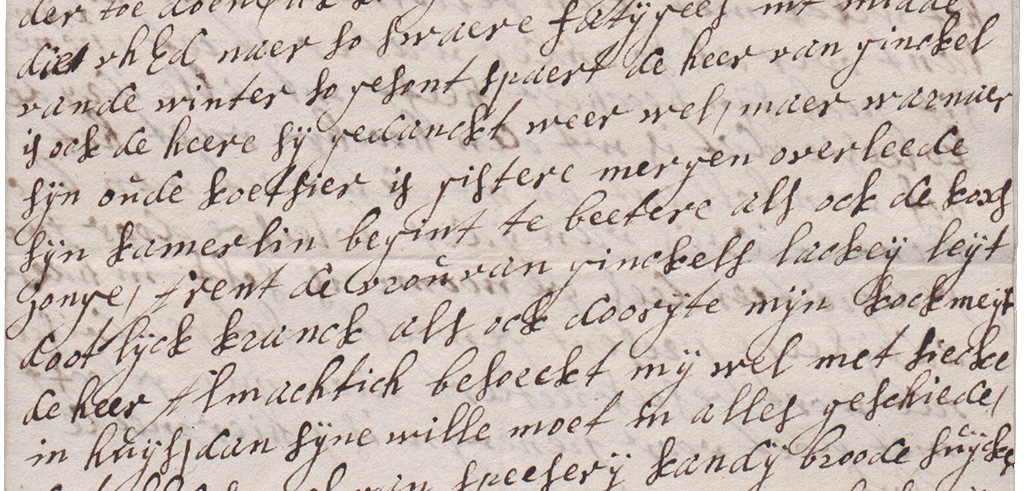 der toe doen
die uhEd naer so swaere fatygees int midde
vande winter so gesont spaert de heer van ginckel
is ock de heere sy gedanckt weer wel, maer warnaer
syn oude koetsier is gistere mergen overleede
syn kamerlin begint te beetere als ock de kox
jonge, trent de vrou van ginckels lackey leyt
dootlyck kranck als ock doortye myn kockmeyt
de heer Almachtich besoeckt my wel met siecke
in huys, dan syne wille moet in alles geschiede,
speesery kandy broode suycke